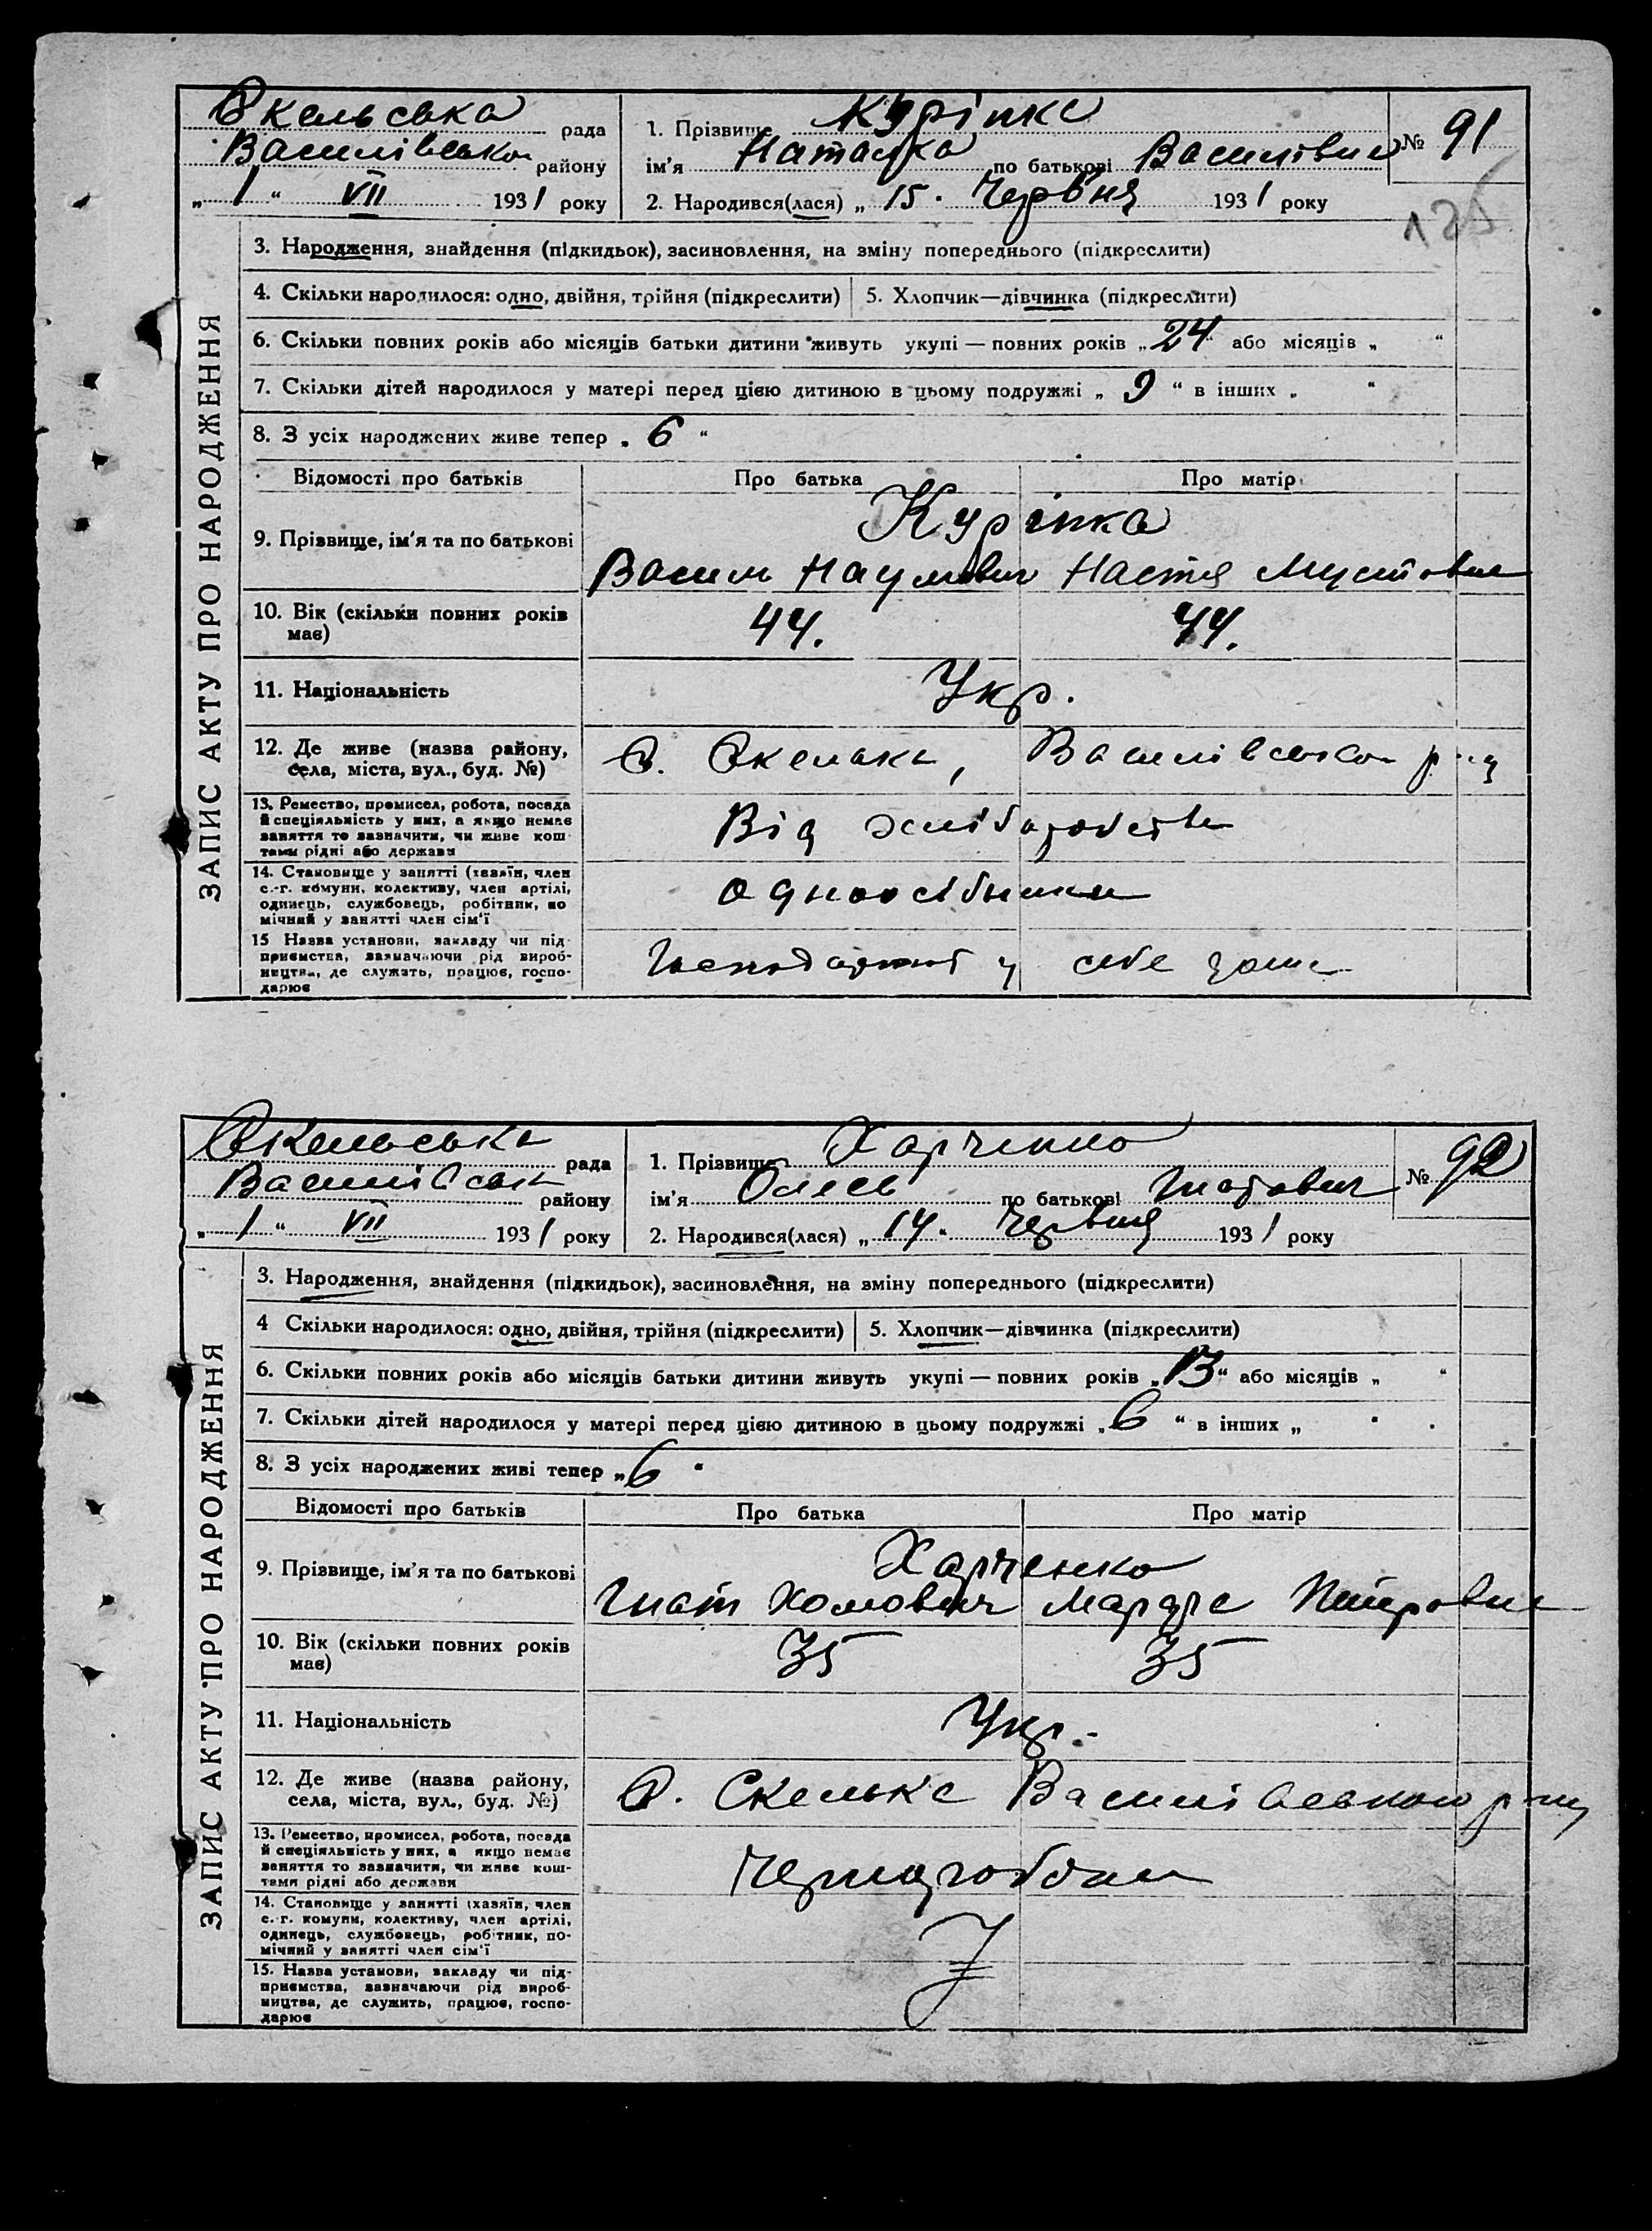 Скельська рада
Василівського району
„ 1 “ VII 1931 року
1. Прізвище Курінка
ім'я Наталка по батькові Василівна
№ 91
2. Народився(лася) „ 15 “ Червня 1931 року
125
ЗАПИС АКТУ ПРО НАРОДЖЕННЯ
3. Народження, знайдення (підкидьок), засиновлення, на зміну попереднього (підкреслити)
4. Скільки народилося: одно, двійня, трійня (підкреслити) 5. Хлопчик—дівчинка (підкреслити)
6. Скільки повних років або місяців батьки дитини живуть укупі — повних років „ 24 “ або місяців „ “
7. Скільки дітей народилося у матері перед цією дитиною в цьому подружжі „ 9 “ в інших „ “
8. З усіх народжених живе тепер „ 6 “
Відомості про батьків Про батька Про матір
9. Прізвище, ім'я та по батькові
Курінка
Василь Наумович Настя
10. Вік (скільки повних років має) 44. 44.
11. Національність Укр.
12. Де живе (назва району, села, міста, вул., буд. №)
с. Скелька, Василівського р-ну
13. Ремество, промисел, робота, посада
й спеціяльність у них, а якщо немає
заняття то зазначити, чи живе кош-
тами рідні або держави
Від хліборобства
14. Становище у занятті (хазяїн, член
с.-г. комуни, колективу, член артілі,
одинець, службовець, робітник, по
мічний у занятті член сім'ї
одноосібники
15 Назва установи, закладу чи під-
приємства, зазначаючи рід вироб-
ництва, де служать, працює, госпо-
дарює
Господарюють у себе дома
Скельська рада
Василівськ району
„ 1 “ VII 1931 року
1. Прізвище Харченко
ім'я Олесь по батькові Гнатович
№ 92
2. Народився(лася) „ 14 “ Червня 1931 року
ЗАПИС АКТУ ПРО НАРОДЖЕННЯ
3. Народження, знайдення (підкидьок), засиновлення, на зміну попереднього (підкреслити)
4 Скільки народилося: одно, двійня, трійня (підкреслити) 5. Хлопчик—дівчинка (підкреслити)
6. Скільки повних років або місяців батьки дитини живуть укупі — повних років „ 13 “ або місяців „ “
7. Скільки дітей народилося у матері перед цією дитиною в цьому подружжі „ 6 “ в інших „ “
8. З усіх народжених живі тепер „ 6 “
Відомості про батьків Про батька Про матір
9. Прізвище, ім'я та по батькові
Харченко
Гнат Хомович Петровна
10. Вік (скільки повних років має) 35 35
11. Національність Укр.
12. Де живе (назва району, села, міста, вул., буд. №)
с. Скелька Василівського р-ну
13. Ремество, промисел, робота, посада
й спеціяльність у них, а якщо немає
заняття то зазначити, чи живе кош-
тами рідні або держави
Чорнороб
14. Становище у занятті (хазяїн, член
с.-г. комуни, колективу, член артілі,
одинець, службовець, робітник, по-
мічний у занятті член сім'ї
15. Назва установи, закладу чи під-
приємства, зазначаючи рід вироб-
ництва, де служить, працює, госпо-
дарює